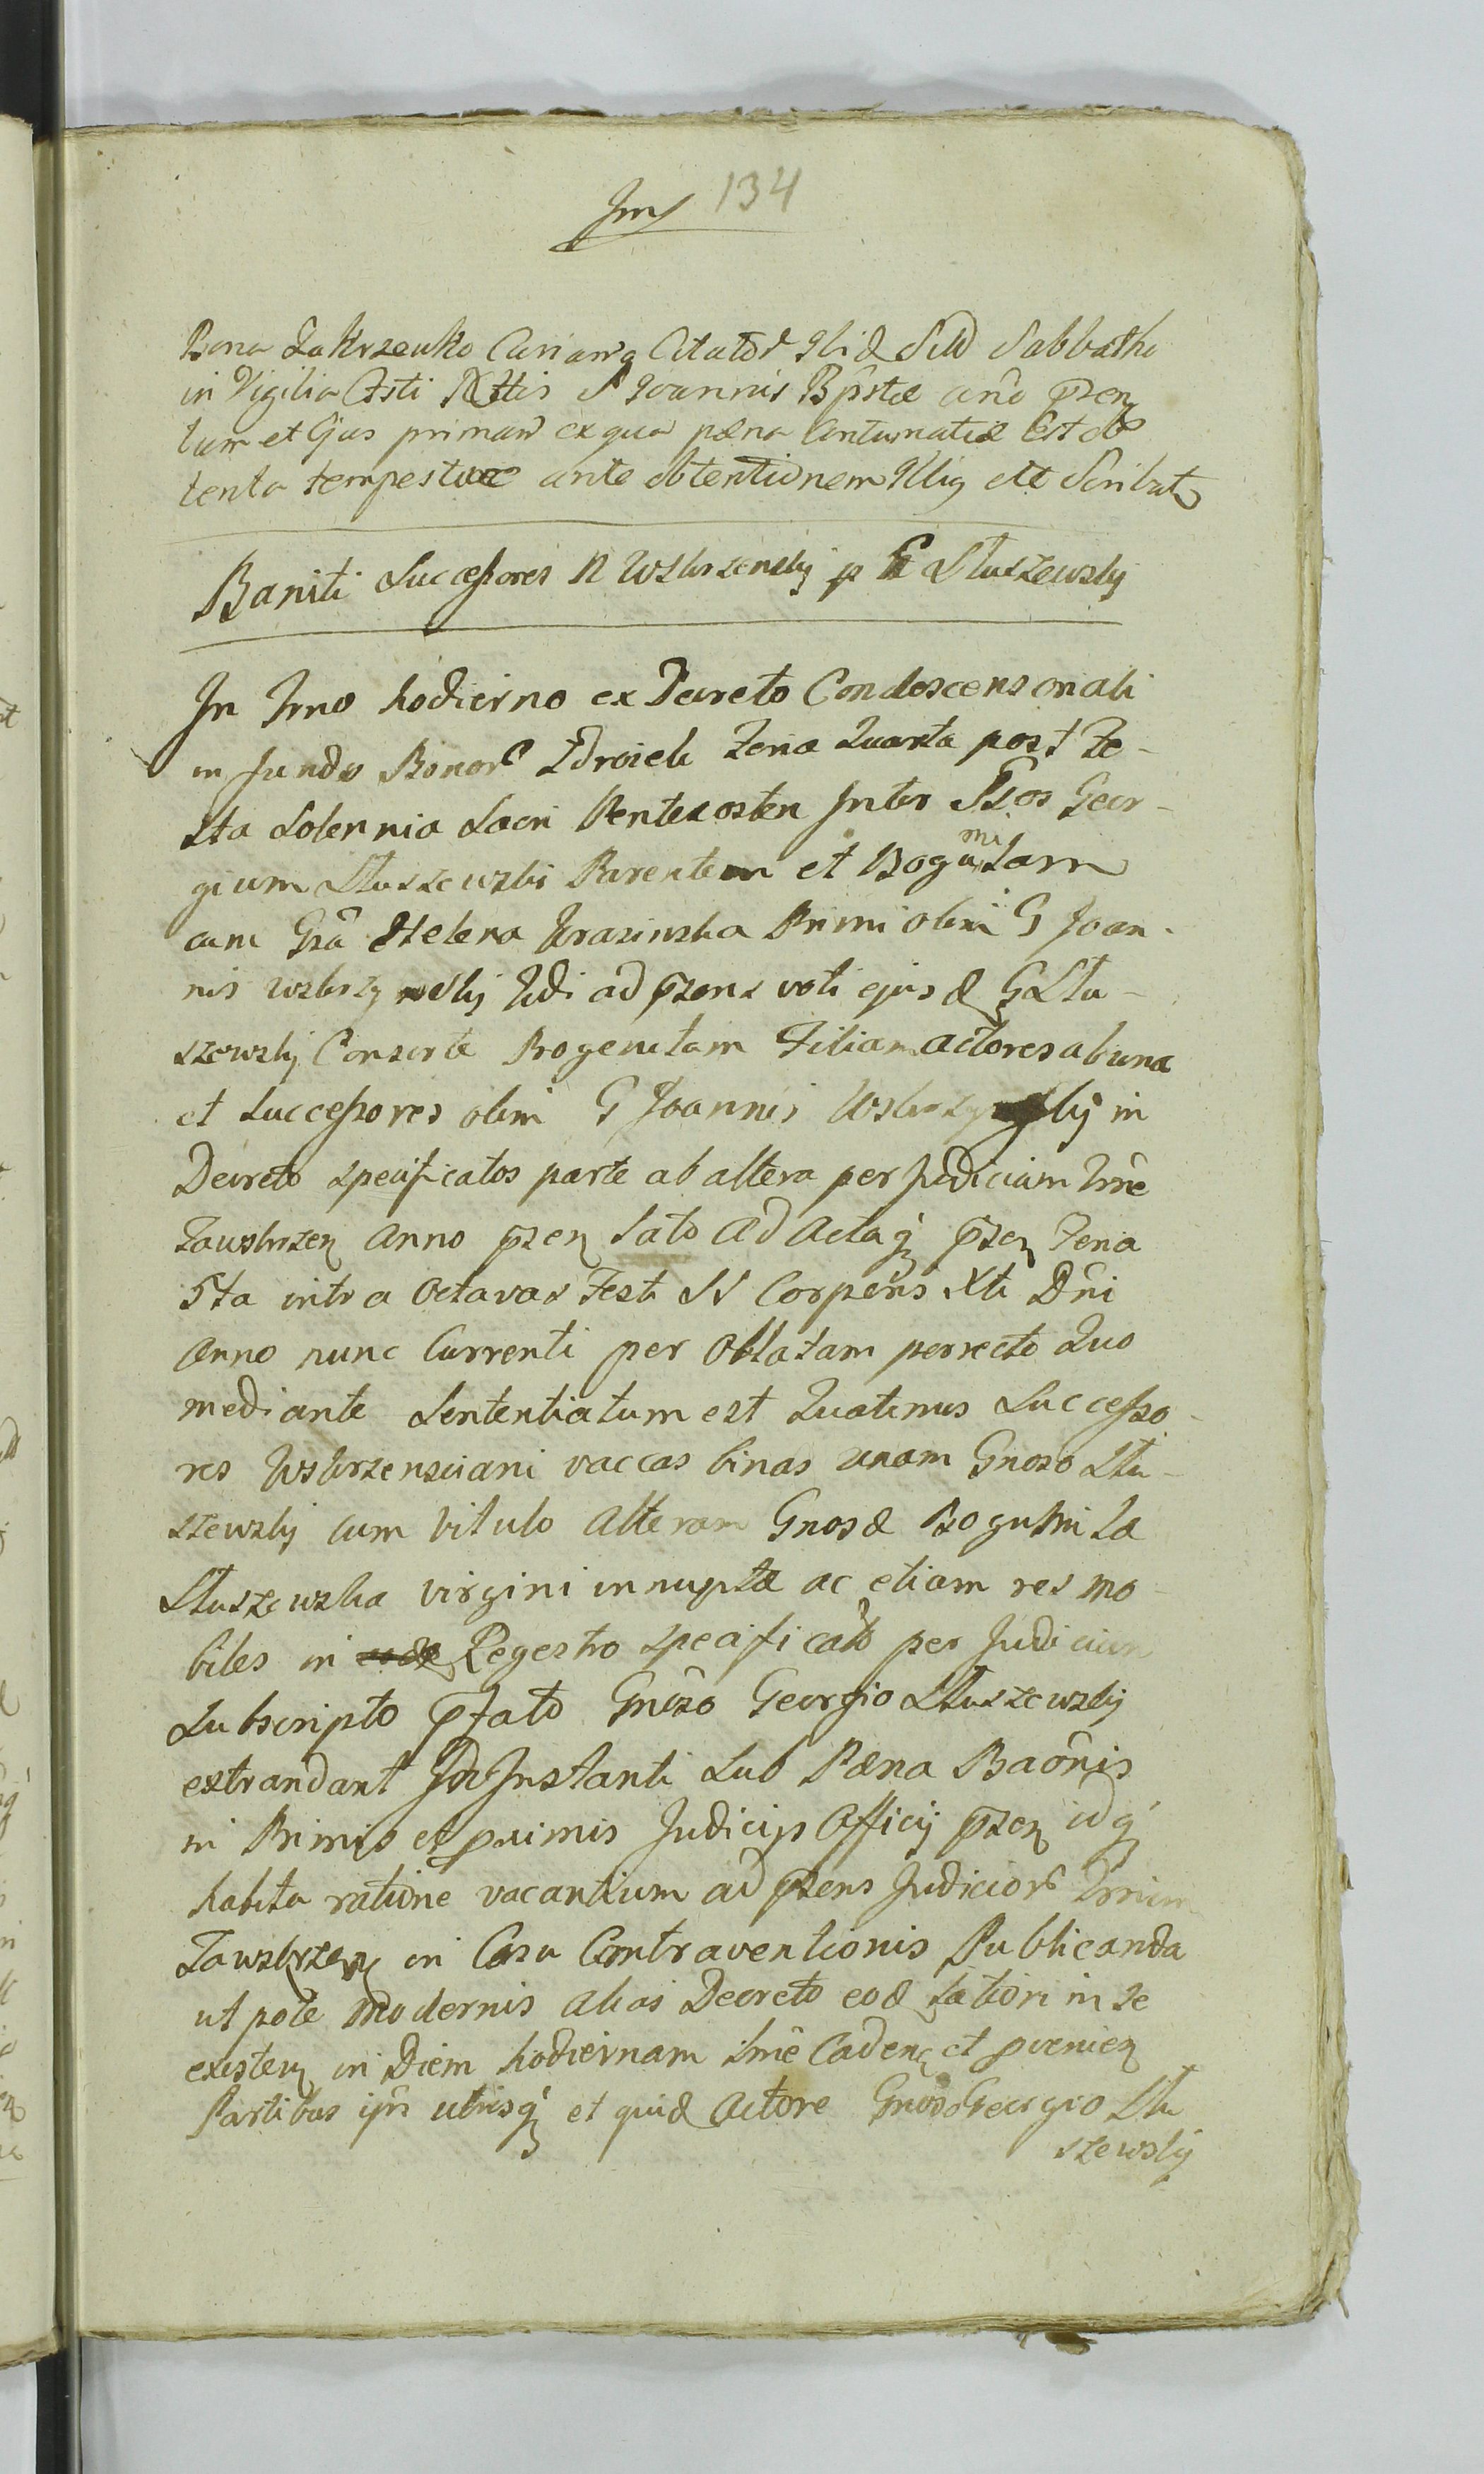 134
Bona Zakrzewko Citator Sabbatho
in Vigilia Festi S Joannis Bpstæ año pñzen
tum et Ejus ex qua pæna Contumatiæ Est ob
tenta tempestive ante obtentionem ett Scribat
Baniti Successores N Wskrzenskÿ p G Stuszewskÿ
In Trno hodierno ex Decreto Condescensonali
in fundo Bonor Zdroieh Feria Quarta post Fe-
sta Solennia Sacri Pentecosten Inter Gsos Geor-
gium Stuszewski Parentem et Bogumilam
cum Gsa Helena Krasinska Primi olim G Joan-
nis Wskrzynskÿ 2di ad pzens voti ejusd G Stu-
szewskÿ Consorte Progenitam Filiam Actores ab una
et Successores olim G Joannis in
Decreto specificatos parte ab altera per Judicium Trrē
Zawskrzen Anno pzen Lato ad Actaq pzen Feria
5ta intra Octavas Festi SS Corporis Xti Dñi
Anno nunc Currenti per Oblatam porrecto Quo
mediante Sententiatum est Quatenus Successo-
res Wskrzensciani vaccas binas unam Gnoso Stu-
szewskÿ cum Vitulo Alteram Gnosæ Bogumila
Stuszewska virgini innuptæ ac etiam res mo-
biles in Regestro specificato per Judicium
Subscripto pfato Gnoso Georgio Stuszewskÿ
extrandant In Instanti Sub Pæna Baōnis
in Primis et primis Judicijs Officij pzen idq
habita ratione vacantium ad pzens Judicior Trrium
Zawskrzen in Casu Contraventionis Publicanda
ut pote Modernis Alias Decreto eod latiori in se
existen in Diem hodiernam Caden et provenien
Partibus ipis utrisq et quid Actore Gnoso Georgio Stu
szewskÿ